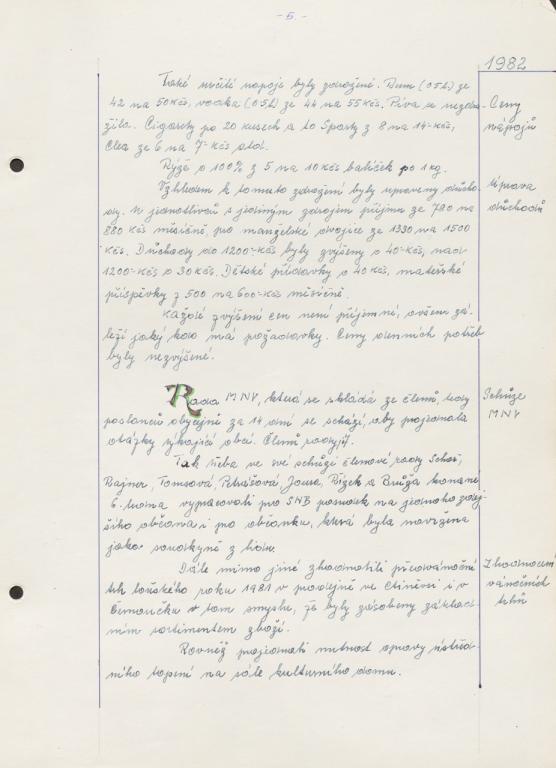 - 5. -
1982
Také určité nápoje byly zdražené. Rum (0 5 l) ze
42 na 50 Kčs, vodka (0 5 l) ze 44 na 55 Kčs. Piva se nezdra-
žilo. Cigarety po 20 kusech a to Sparty z 8 na 14 Kčs,
Clea ze 6 na 7 Kčs atd.
Ceny
nápojů
Rýže o 100% z 5 na 10 Kčs balíček po 1 kg.
Vzhledem k tomuto zdražení byly upraveny důcho-
dy. U jednotlivců s jediným zdrojem příjmu ze 790 na
880 Kčs měsíčně, pro manželské dvojice ze 1330 na 1500
Kčs. Důchody do 1200 Kčs byly zvýšeny o 40 Kčs, nad
1200 Kčs o 30 Kčs. Dětské přídavky o 40 Kčs, mateřské
příspěvky z 500 na 600 Kčs měsíčně.
úprava
důchodů
Každé zvýšení cen není příjemné, ovšem zá-
leží jaký kdo má požadavky. Ceny denních potřeb
byly nezvýšené.
Rada MNV, která se skládá ze členů, tedy
poslanců obyčejně za 14 dní se schází, aby projednala
otázky týkající obce. Členů rady je 7.
Schůze
MNV
Tak třeba ve své schůzi členové rady
Bajner, Tomsová, Petrášová, Jouza, Řízek a Brůža konané
6. ledna vypracovali pro SNB posudek na jednoho zdej-
šího občana i na občanku, která byla navržena
jako soudkyně z lidu.
Dále mimo jiné zhodnotili předvánoční
trh loňského roku 1981 v prodejně ve Ctiněvsi i v
Černoučku v tom smyslu, že byly zásobeny základ-
ním sortimentem zboží.
Zhodnocení
vánočních
trhů
Rovněž projednali nutnost opravy ústřed-
ního topení na sále kulturního domu.